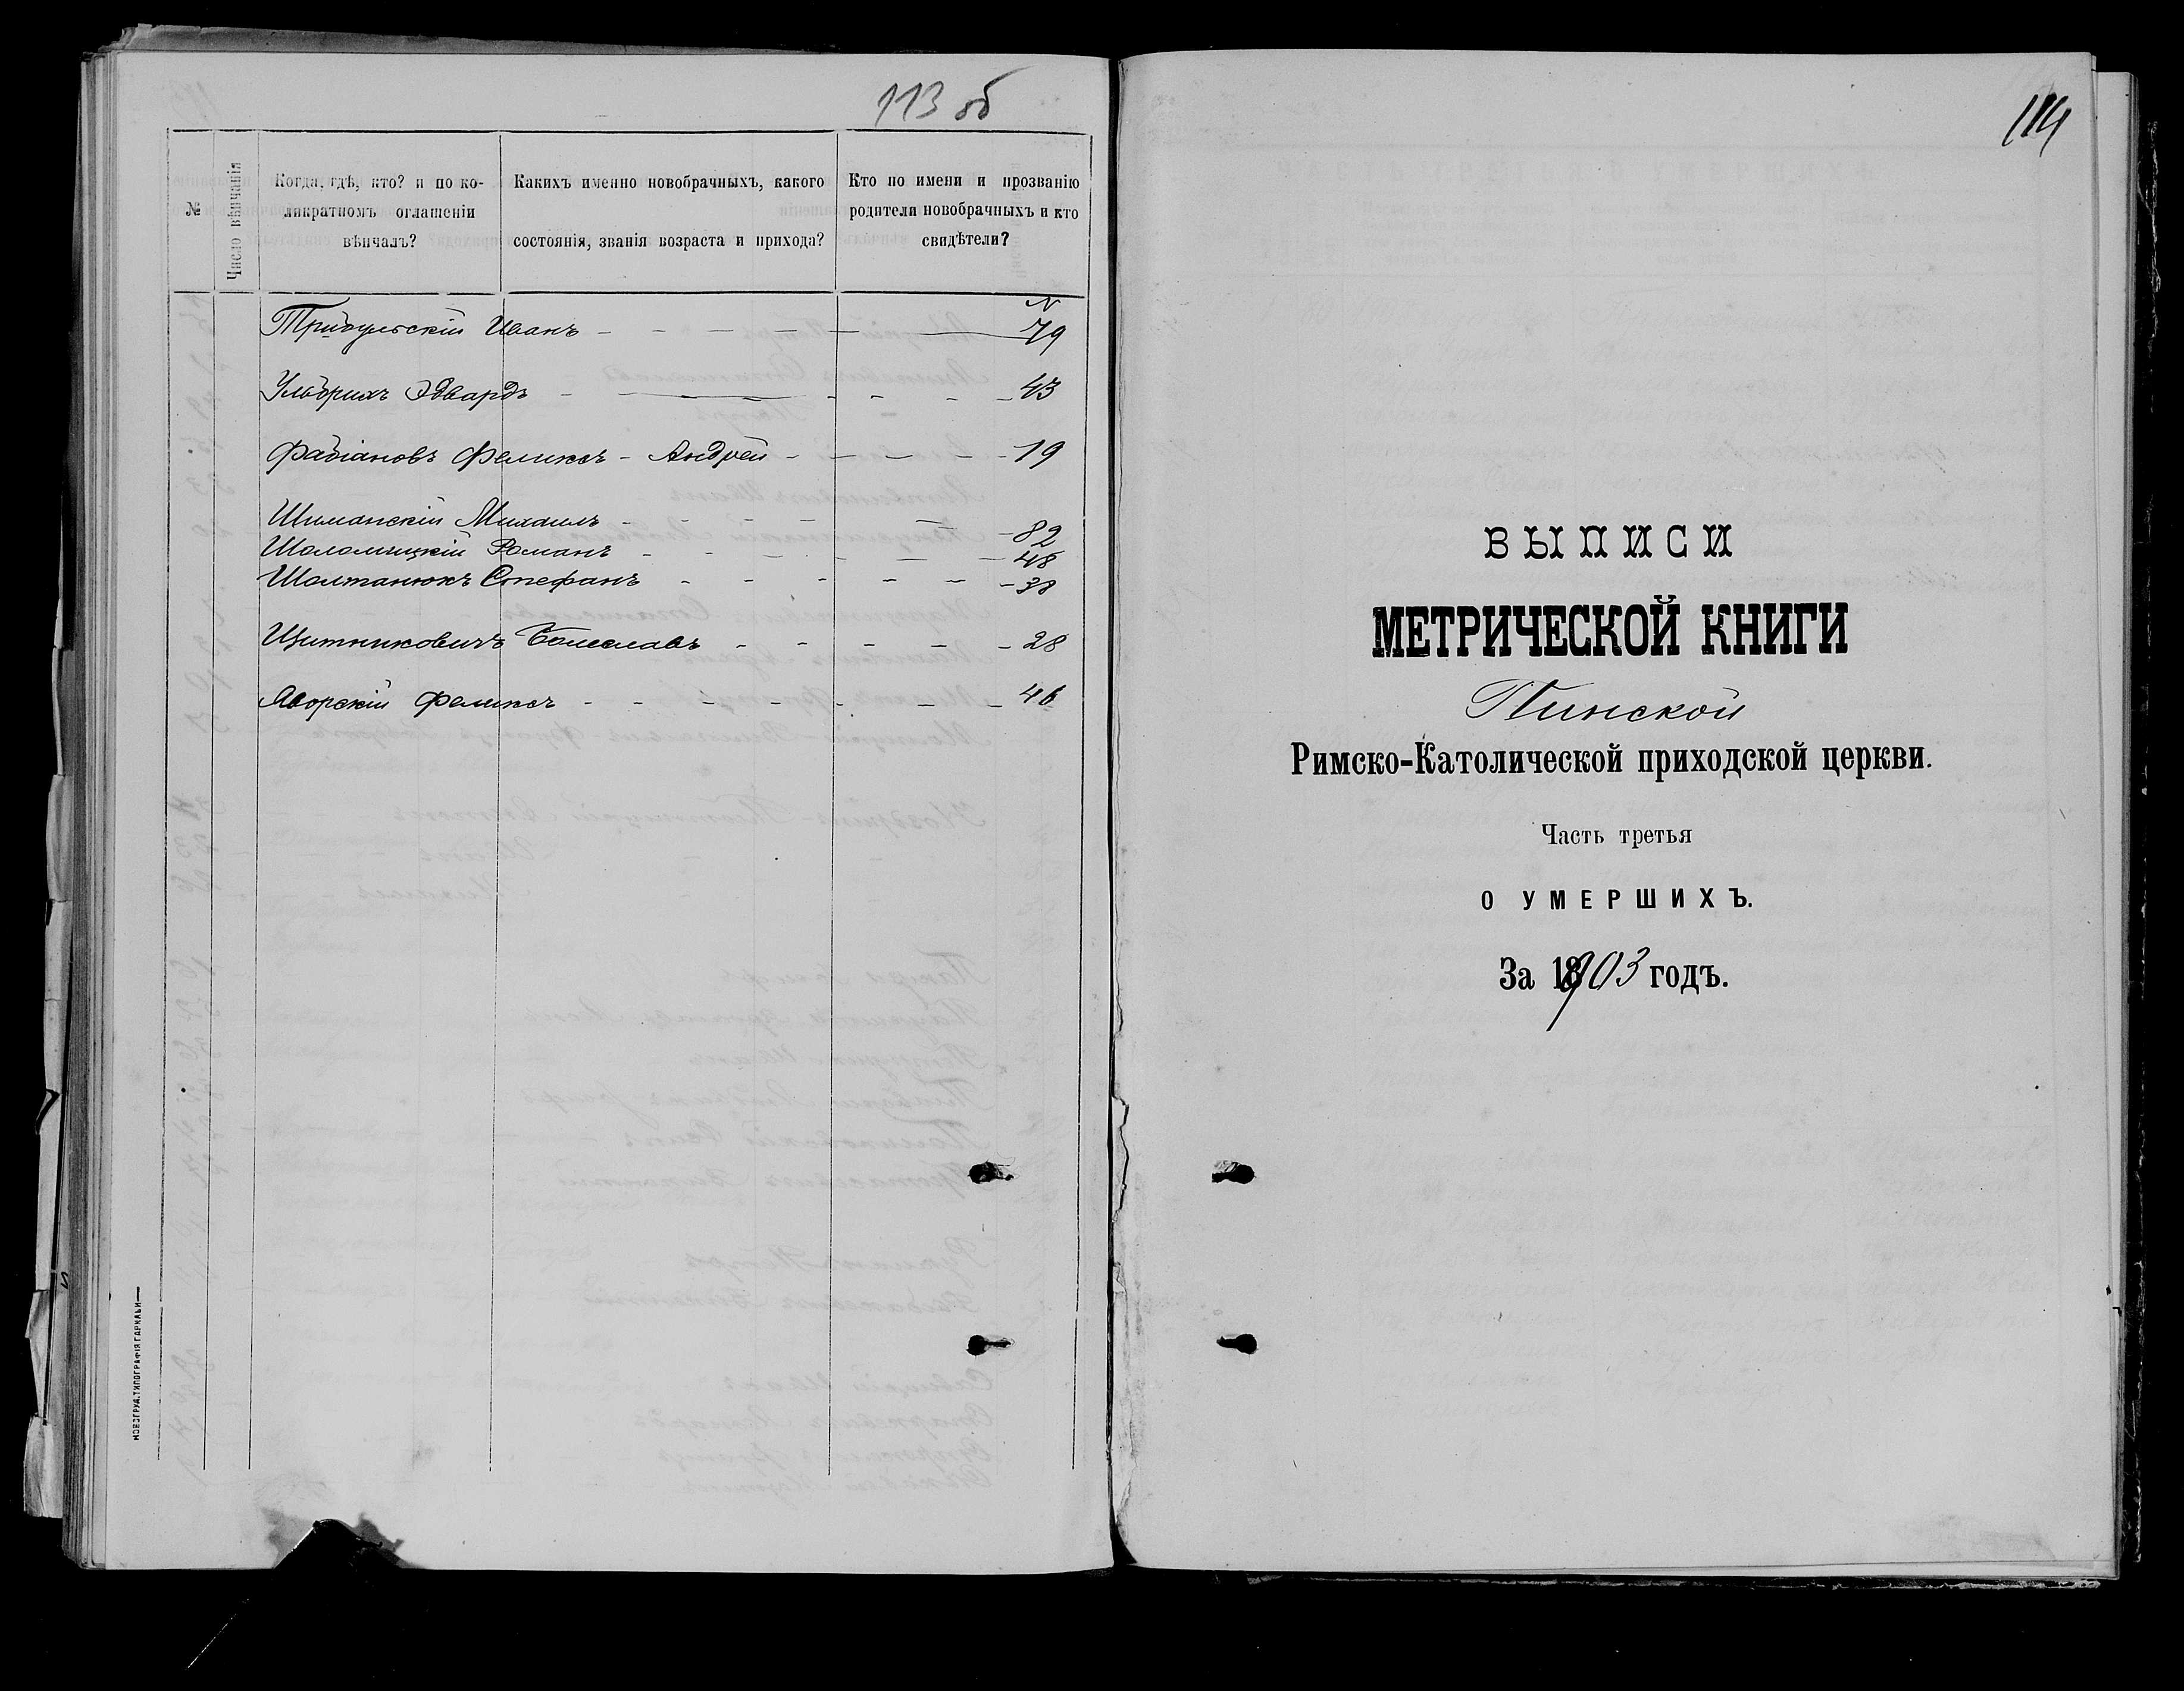 113 об
№
Число вѣнчанія
Когда, гдѣ, кто? и по ко-
ликратномъ оглашеніи
вѣнчалъ?
Какихъ именно новобрачныхъ, какого
состоянія, званія возраста и прихода?
Кто по имени и прозванію
родители новобрачныхъ и кто
свидѣтели?
N
Иванъ - - - - - 79
Ульбрихъ Эдвардъ - - - - - 43
Фабіановъ Феликсъ - Андрей - - - - 19
Шиманскій Михаилъ - - - - - 82
Шоломицкій Романъ - - - - - 48
Шолтанюкъ Стефанъ - - - - - - 38
Щитниковичъ Болеславъ - - - - - 28
Яворскій Феликсъ - - - - - - - 46
НОВОГРУД. ТИПОГРАФІЯ ГАРКАВИ
114
ВЫПИСИ
МЕТРИЧЕСКОЙ КНИГИ
Пинской
Римско-Католической приходской церкви.
Часть третья
О УМЕРШИХЪ.
За 1903 годъ.